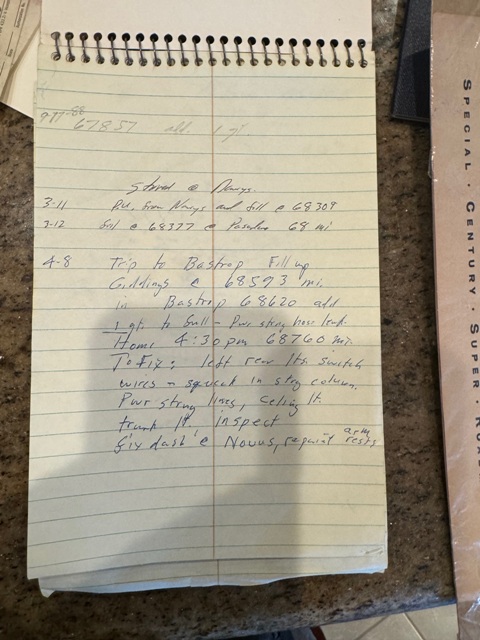 67857 add. 1 qt
Stored @
3-11 P.U. from and fill @ 68309
3-12 fill @ 68377 @ Pasadena 68 mi
4-8 Trip to Bastrop Fill up
Giddings @ 68593 mi.
in Bastrop 68620 add
1 qt. to full - Pwr strng hose leak.
Home 4:30 pm 68760 mi.
To Fix: left rear lts. switch
wires - squeak in strg column.
Pwr strng lines, Celing lt.
trunk lt. inspect
fix dash @ Novus, repaint arm rests
SPECIAL · CENTURY · SUPER ·